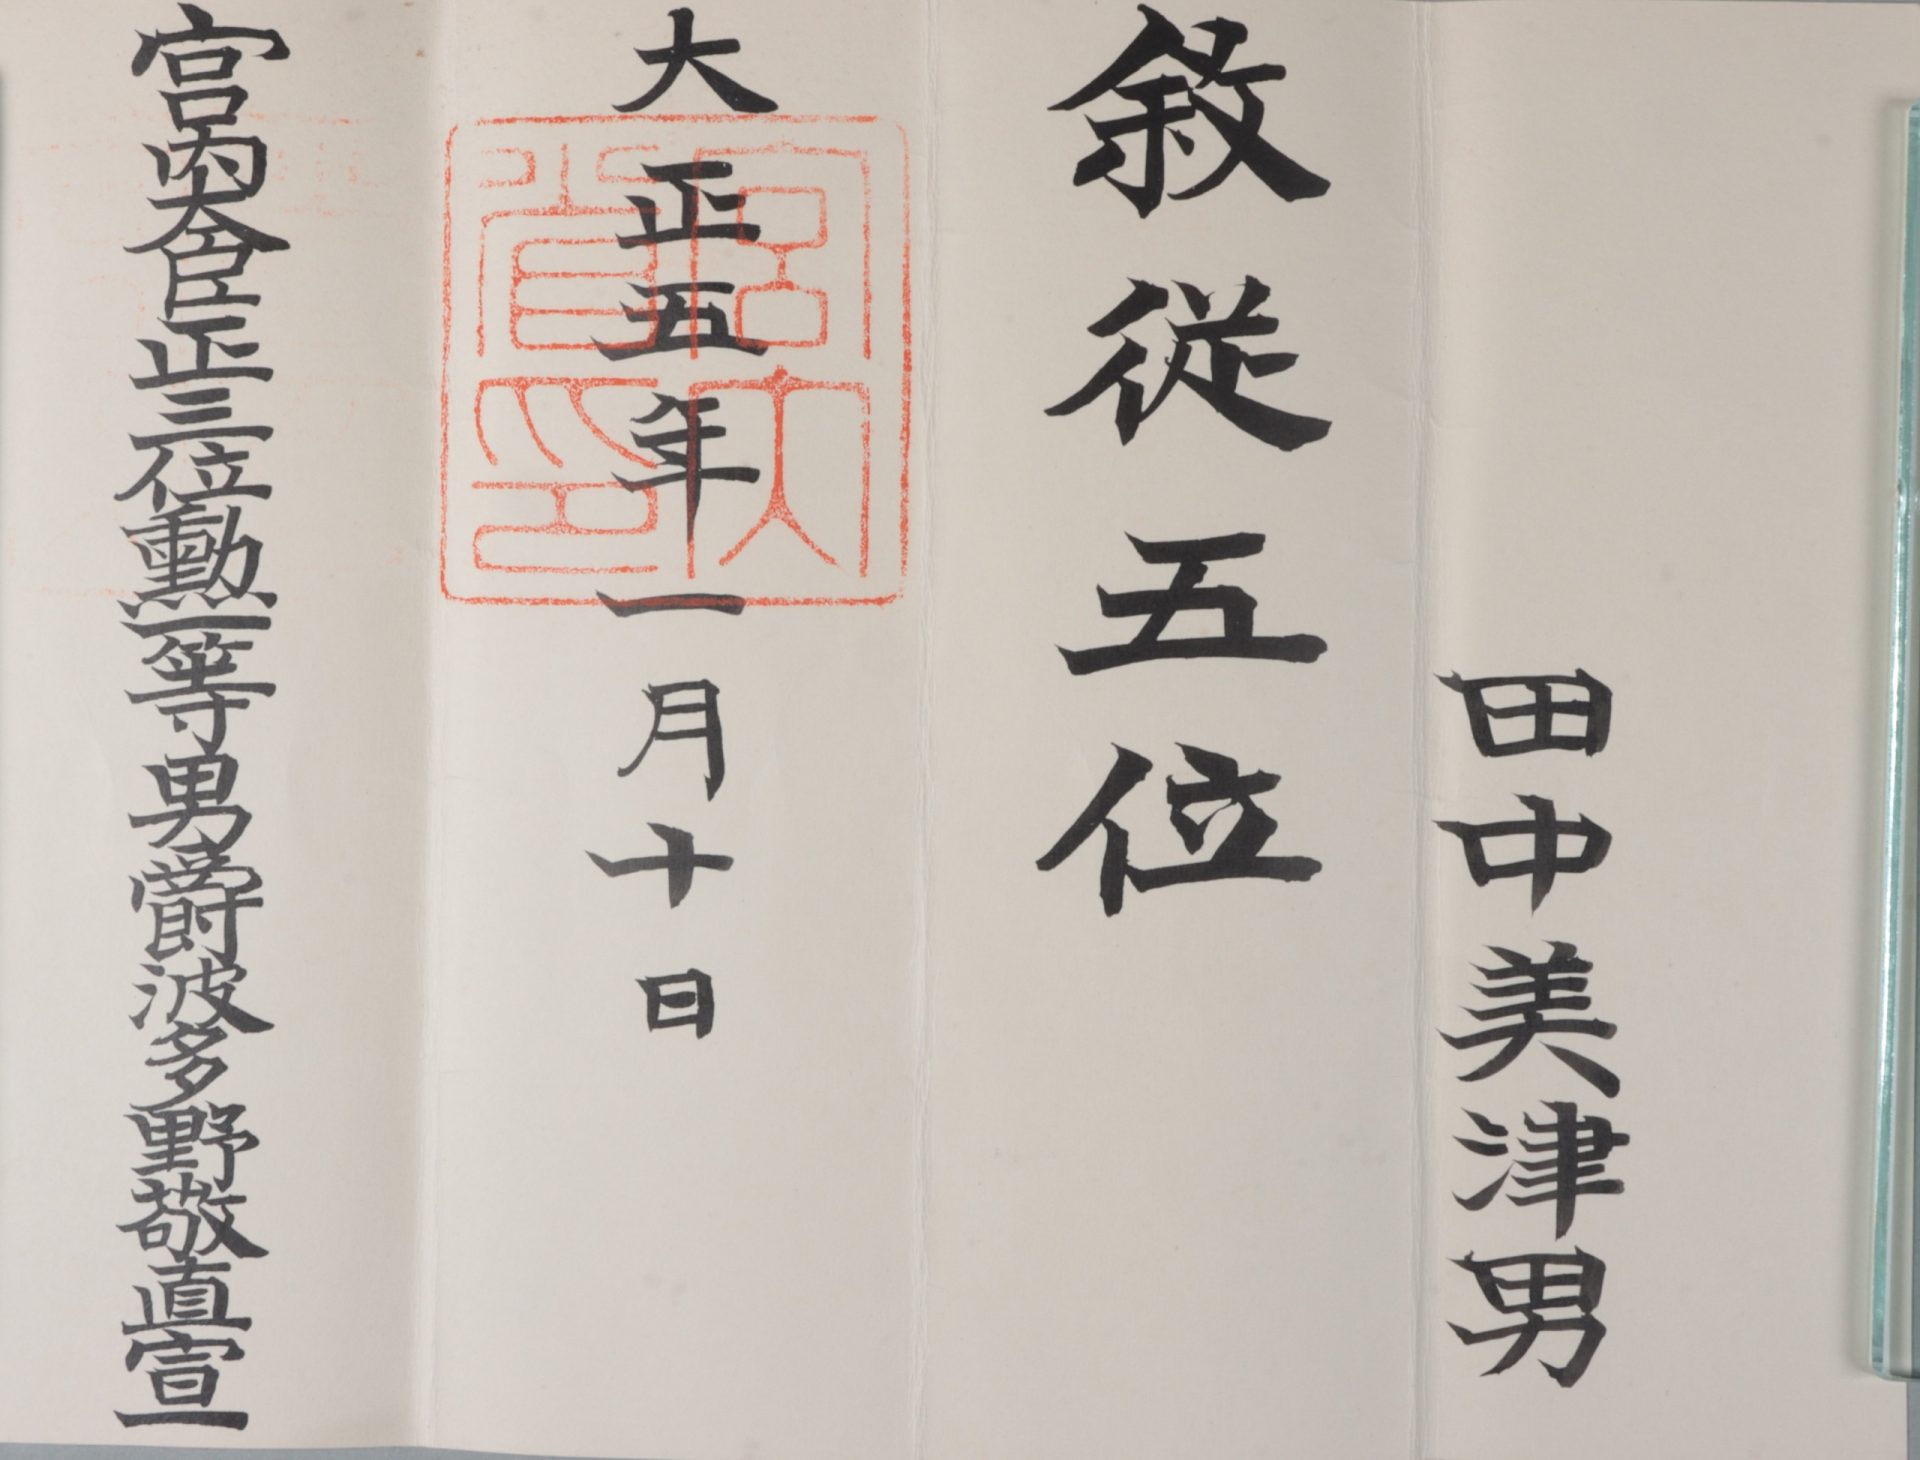 田中美津男
敘従五位
大正五年一月十日
宮内大臣正三位勳一等男爵波多野敬直宣
宮内省印